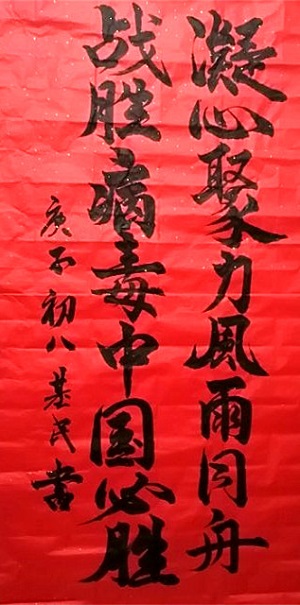 凝心聚力風雨同舟
战胜病毒中国必胜
庚子初八基民書